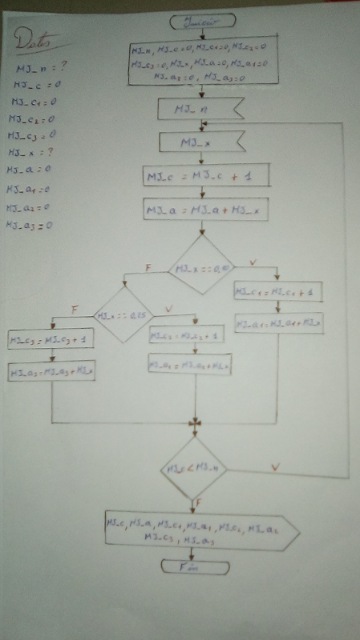 Datos
MJ_n = ?
MJ_c = 0
MJ_c1 = 0
MJ_c2 = 0
MJ_c3 = 0
MJ_x = ?
MJ_a = 0
MJ_a1 = 0
MJ_a2 = 0
MJ_a3 = 0
MJ_n, MJ_c=0, MJ_c1=0, MJ_c2=0
MJ_c3=0, MJ_x, MJ_a=0, MJ_a1=0
MJ_a2=0, MJ_a3=0
MJ_n
MJ_x
MJ_c = MJ_c + 1
MJ_a = MJ_a + MJ_x
MJ_x ==
F
V
MJ_c1 = MJ_c1 + 1
MJ_a1 = MJ_a1 + MJ_x
MJ_x ==
F
V
MJ_c3 = MJ_c3 + 1
MJ_a3 = MJ_a3 + MJ_x
MJ_c2 = MJ_c2 + 1
MJ_a2 = MJ_a2 + MJ_x
MJ_c < MJ_n
V
F
MJ_c, MJ_a, MJ_c1, MJ_a1, MJ_c2, MJ_a2
MJ_c3, MJ_a3
Fin